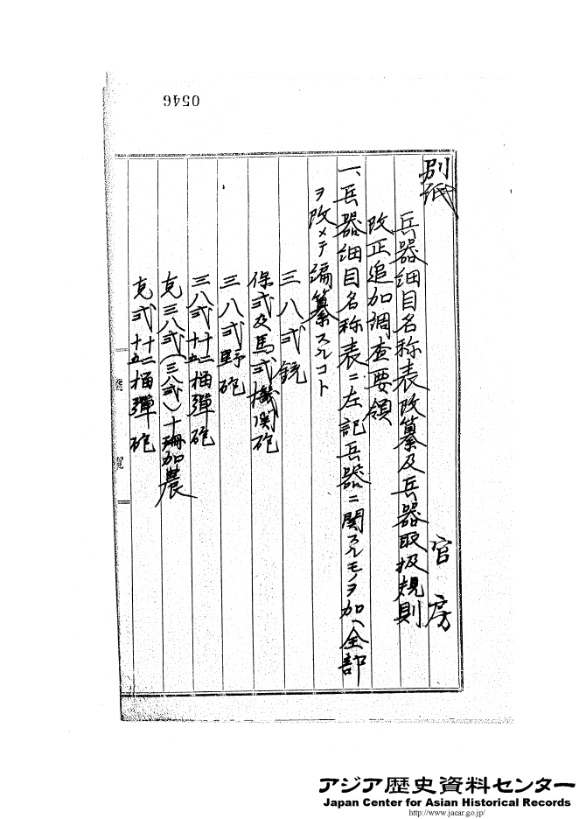 0546
別紙
官房
兵器細目名称表改纂及兵器取扱規則
改正追加調査要領
一、兵器細目名称表ニ左記兵器ニ関スルモノヲ加ヘ全部
ヲ改メテ編纂スルコト
三八式銃
保式及馬式機関砲
三八式野砲
三八式十二十五榴弾砲
克三八式(三八式)十珊加農
克式十二十五榴弾砲
アジア歴史資料センター
Japan Center for Asian Historical Records
http://www.jacar.go.jp/